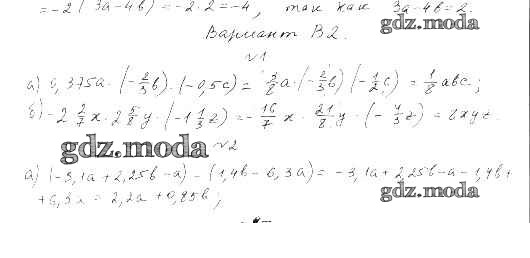 = -2(3a-4b) = -2·2 = -4, так как 3a-4b=2.
gdz.moda
Вариант В2.
№1
а) 0,375a·(-2/3b)·(-0,5c) = 3/8a·(-2/3b)(-1/2c) = 1/8abc;
б) -2 2/7x·2 5/8y·(-1 1/3z) = -16/7x·21/8y·(-4/3z) = 8xyz.
gdz.moda №2
а) (-3,1a+2,25b-a)-(1,4b-6,3a) = -3,1a+2,25b-a-1,4b+
+6,3a = 2,2a+0,85b;
gdz.moda